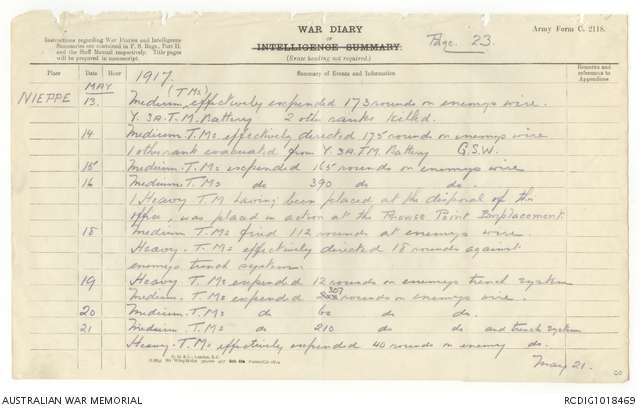 WAR DIARY
or
INTELLIGENCE SUMMARY.
(Erase heading not required.)
Army Form C. 2118.
Page 23
Instructions regarding War Diaries and Intelligence
Summaries are contained in F. S. Regs., Part II.
and the Staff Manual respectively. Title pages
will be prepared in manuscript.
Place Date Hour Summary of Events and Information Remarks and references to Appendices
MAY 1917
NIEPPE 13. Medium (T.Ms) effectively expended 173 rounds on enemys wire.
Y. 3A. T.M. Battery 2 other ranks killed.
14 Medium T.Ms. effectively directed 175 rounds on enemys wire
1 other rank evacuated from Y. 3A. T.M. Battery G.S.W.
15 Medium T.Ms expended 165 rounds on enemys wire
16 Medium T.Ms do 390 do do.
1 Heavy T.M. having been placed at the disposal of this
office, was placed in action at the Point Emplacement
18 Medium T.Ms fired 112 rounds at enemys wire.
Heavy T.Ms effectively directed 18 rounds against
enemys trench system.
19 Heavy T.Ms expended 12 rounds on enemys trench system
Medium. T.Ms expended 307 rounds on enemys wire.
20 Medium T.Ms do 60 do do.
21 Medium T.Ms do 210 do do and trench system
Heavy T.Ms effectively expended 40 rounds on enemy do.
May 21.
AUSTRALIAN WAR MEMORIAL
RCDIG1018469